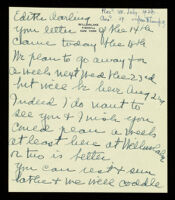 Edith darling
your letter of the 14th
came today the 16th
We plan to go away for
a week next Wed the 23rd
but will be here Aug 2nd
Indeed I do want to
see you & I wish you
could plan a week
at least here at
or two is better
You can rest & sun
bathe & we will coddle